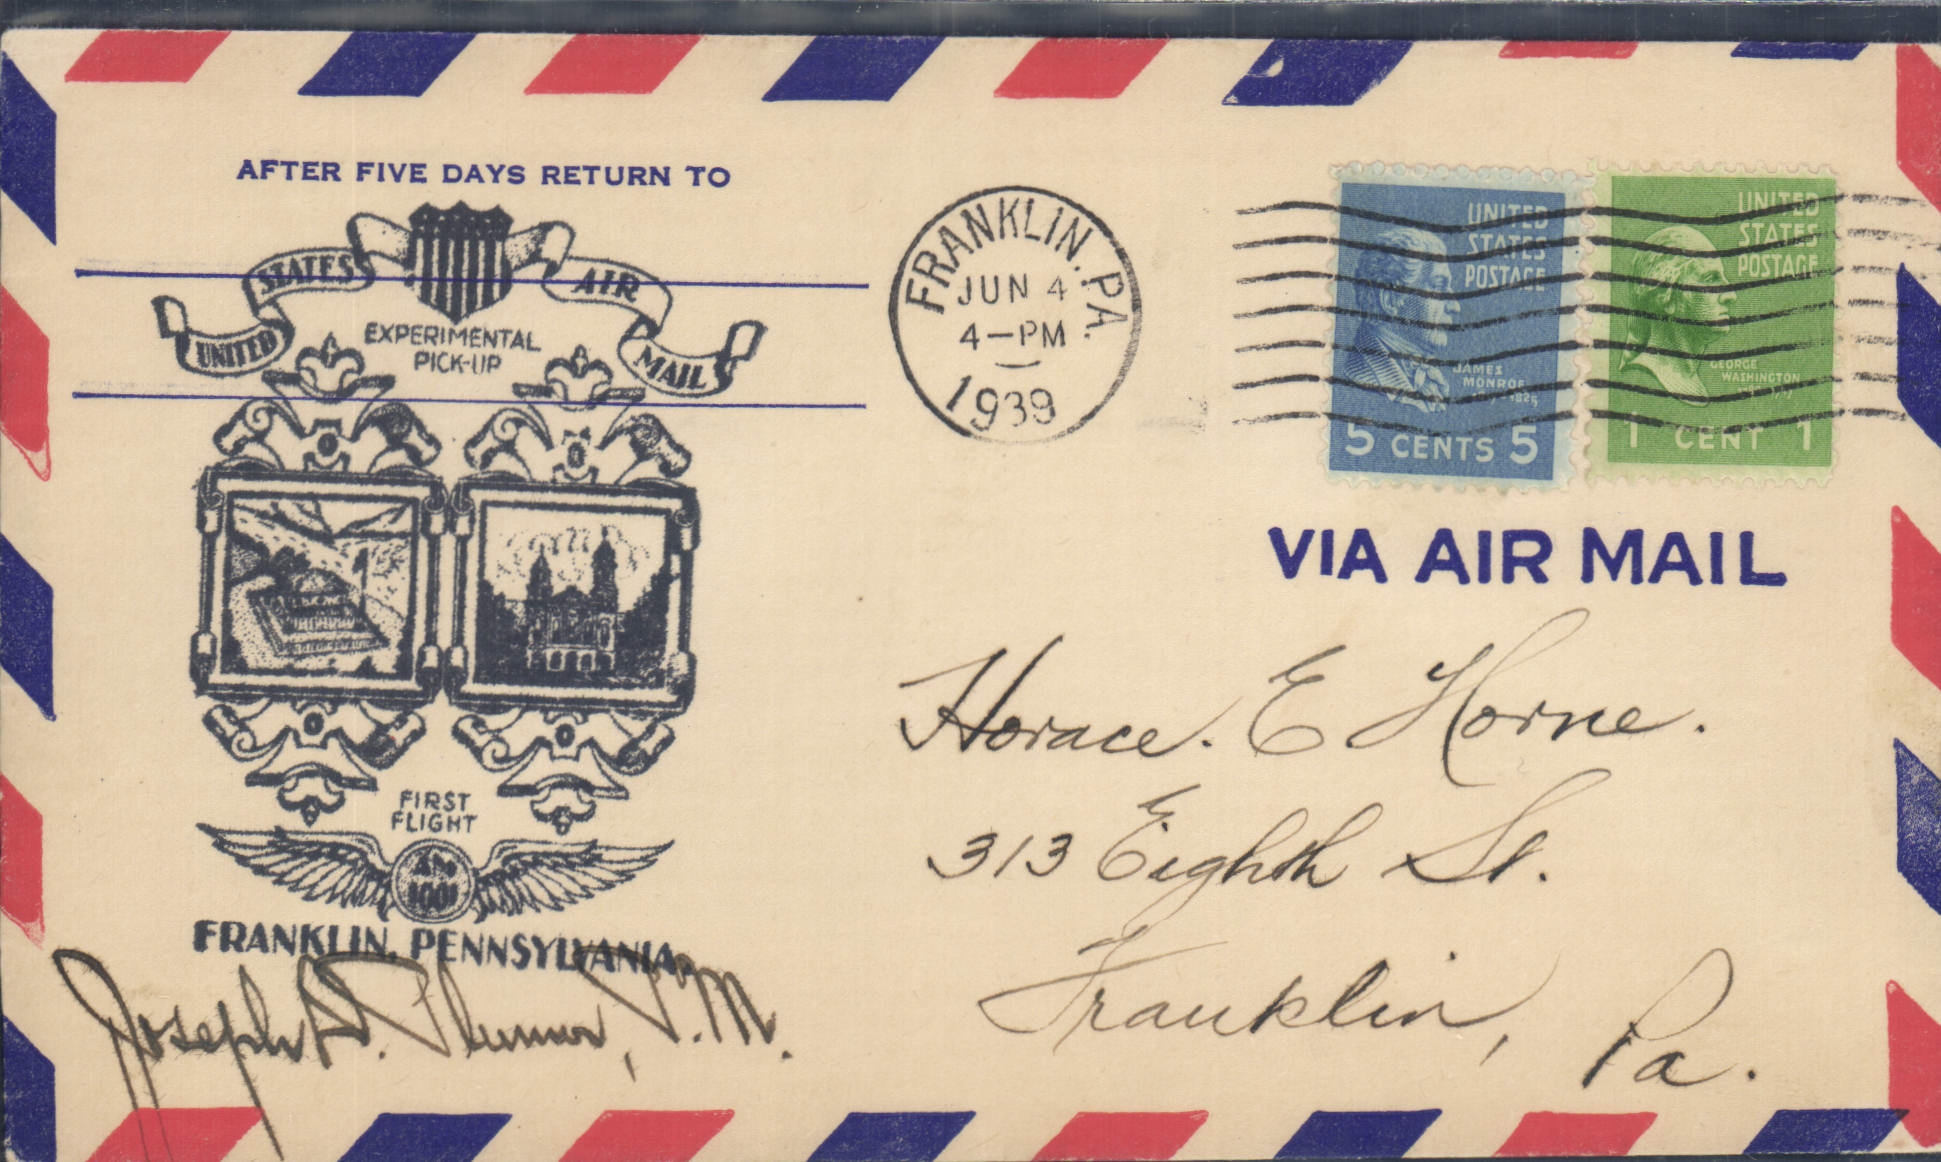 AFTER FIVE DAYS RETURN TO
UNITED STATES AIR MAIL
EXPERIMENTAL
PICK-UP
FIRST
FLIGHT
AM
1001
FRANKLIN, PENNSYLVANIA.
Joseph P.M.
FRANKLIN. PA.
JUN 4
4-PM
1939
UNITED
STATES
POSTAGE
JAMES
MONROE
5 CENTS 5
UNITED
STATES
POSTAGE
GEORGE
WASHINGTON
1 CENT 1
VIA AIR MAIL
Horace. E Horne.
313 Eighth St.
Franklin, Pa.